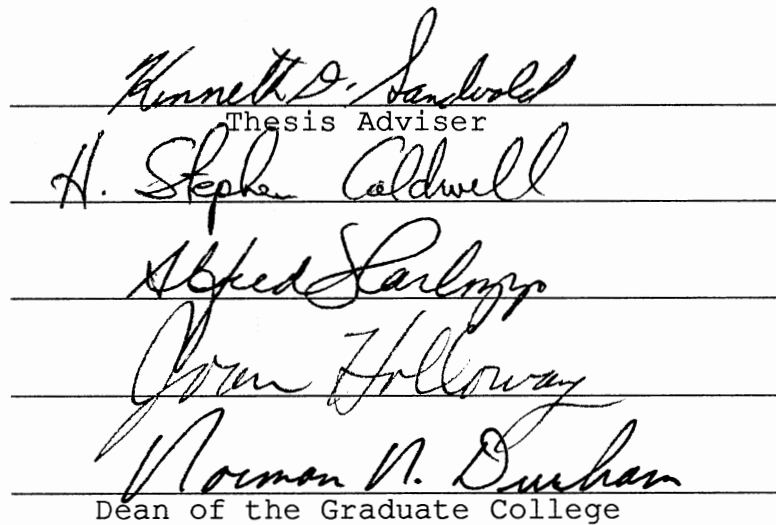 Kenneth D. Sandvold
Thesis Adviser
H. Stephen Caldwell
Alfred Carlozzi
Joan Holloway
Norman N. Durham
Dean of the Graduate College